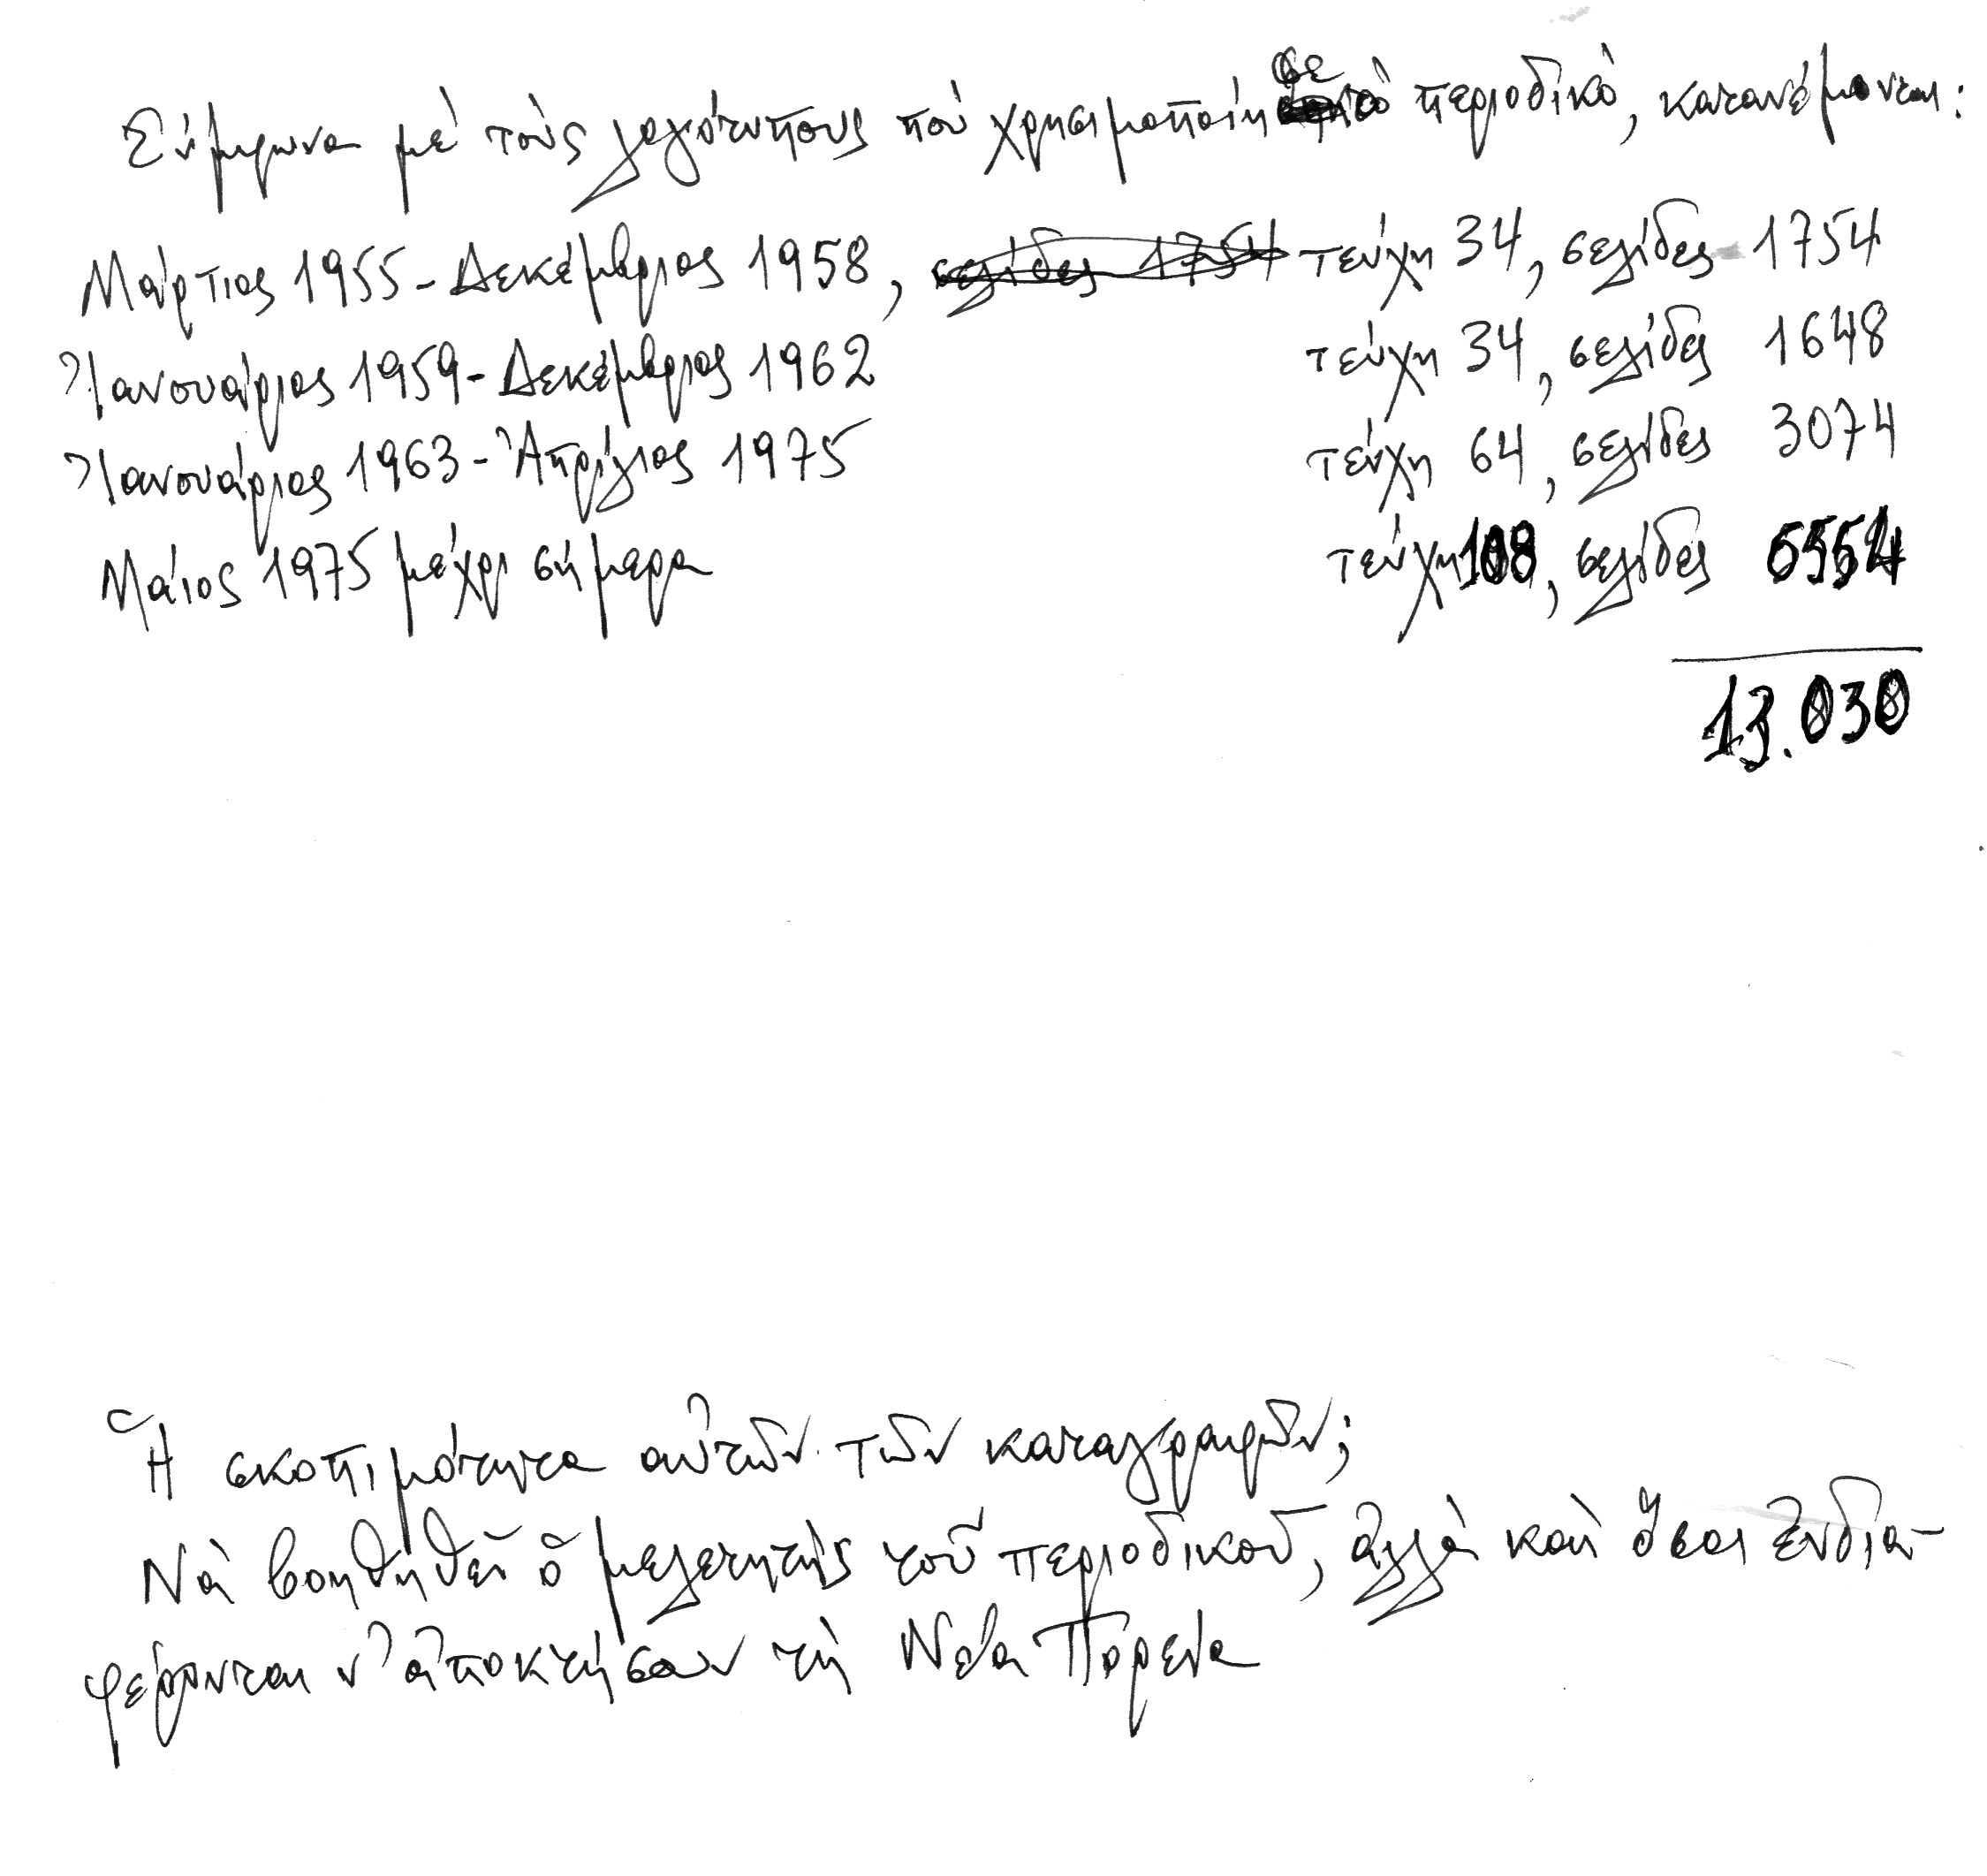 Σύμφωνα μὲ τοὺς λογότυπους ποὺ χρησιμοποίησε τὸ περιοδικό, κατανέμονται:
Μάρτιος 1955 - Δεκέμβριος 1958, σελίδες 1754 τεύχη 34, σελίδες 1754
Ἰανουάριος 1959 - Δεκέμβριος 1962 τεύχη 34, σελίδες 1648
Ἰανουάριος 1963 - Ἀπρίλιος 1975 τεύχη 64, σελίδες 3074
Μάιος 1975 μέχρι σήμερα τεύχη 108, σελίδες 6554
13.030
Ἡ σκοπιμότητα αὐτῶν τῶν καταγραφῶν;
Νὰ βοηθηθεῖ ὁ μελετητὴς τοῦ περιοδικοῦ, ἀλλὰ καὶ ὅσοι ἐνδια-
φέρονται ν' ἀποκτήσουν τὴ Νέα Πορεία